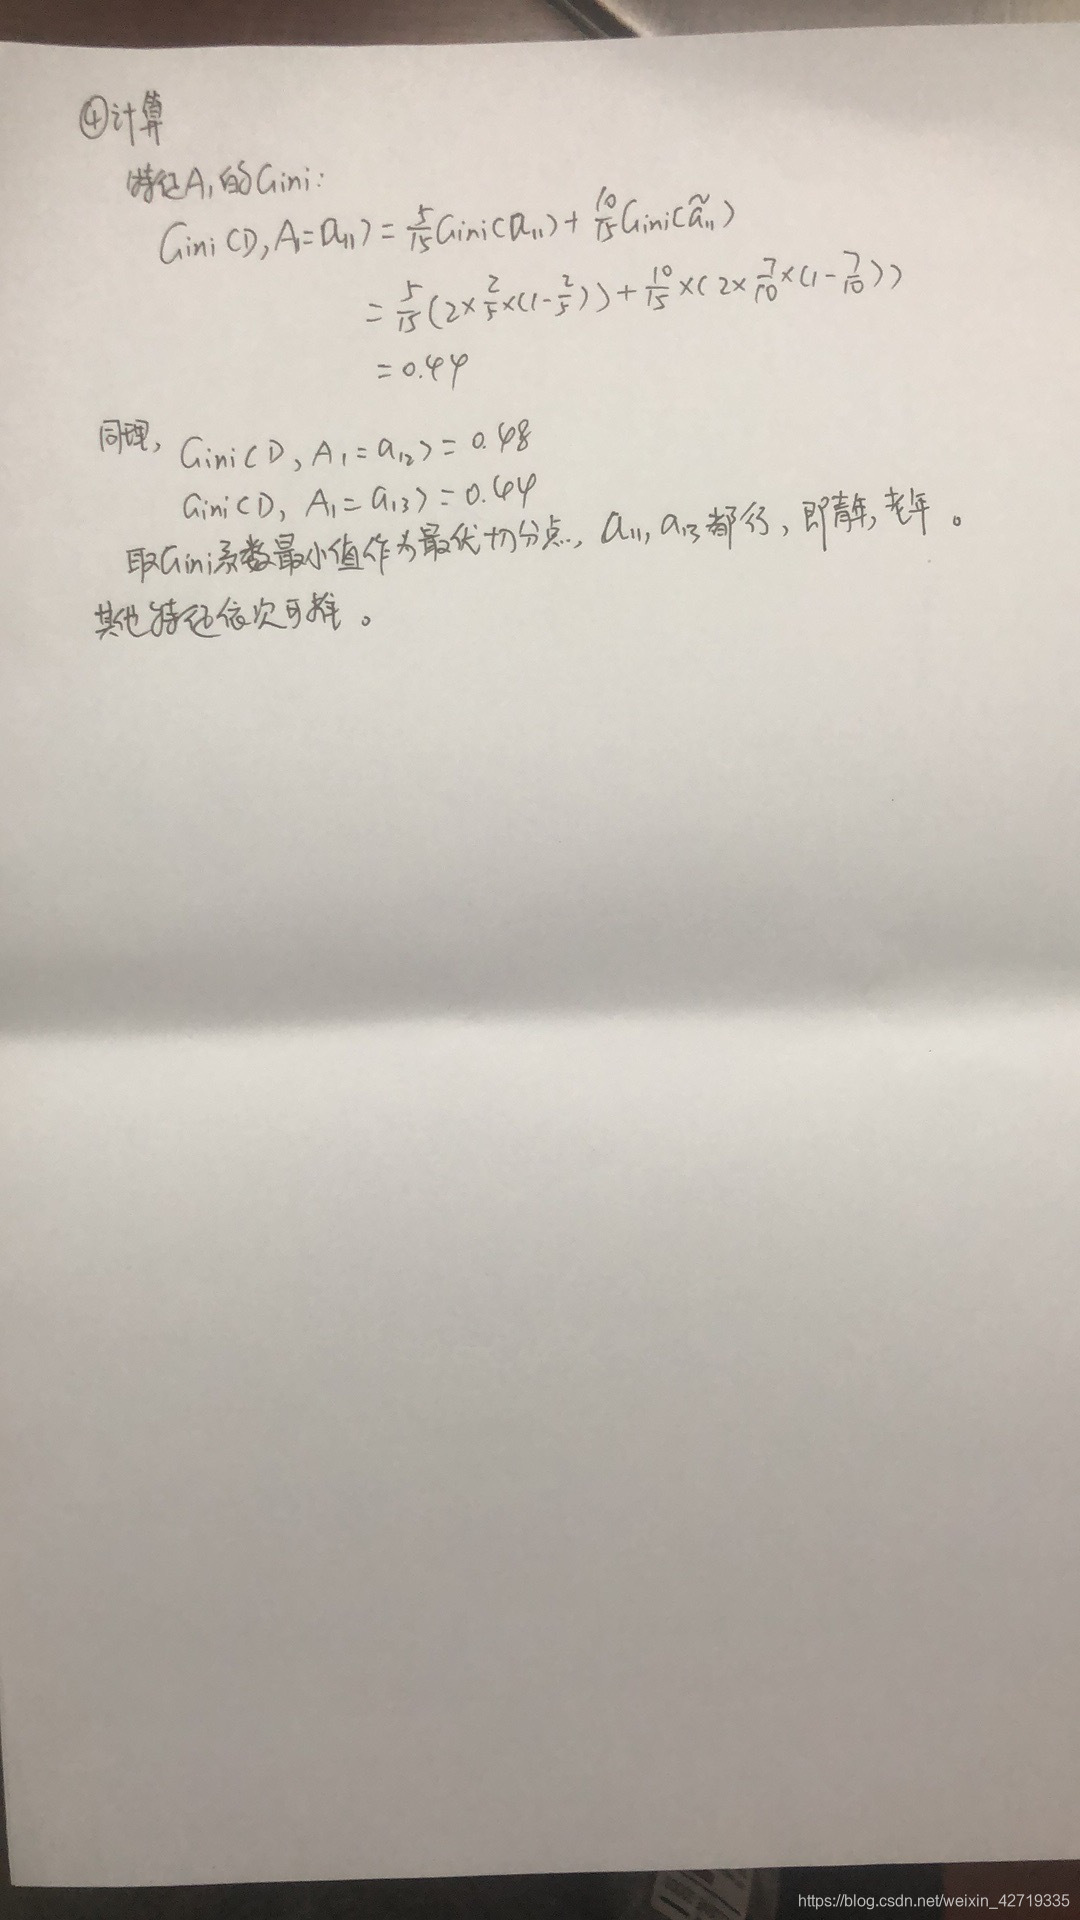 ④计算
特征A₁的Gini:
Gini(D,A₁=a₁₁)=5/15Gini(a₁₁)+10/15Gini(ã₁₁)
=5/15(2×2/5×(1-2/5))+10/15×(2×7/10×(1-7/10))
=0.44
同理, Gini(D,A₁=a₁₂)=0.48
Gini(D, A₁=a₁₃)=0.44
取Gini系数最小值作为最优切分点, a₁₁,a₁₃都行, 即青年,老年。
其他特征依次可推。
https://blog.csdn.net/weixin_42719335